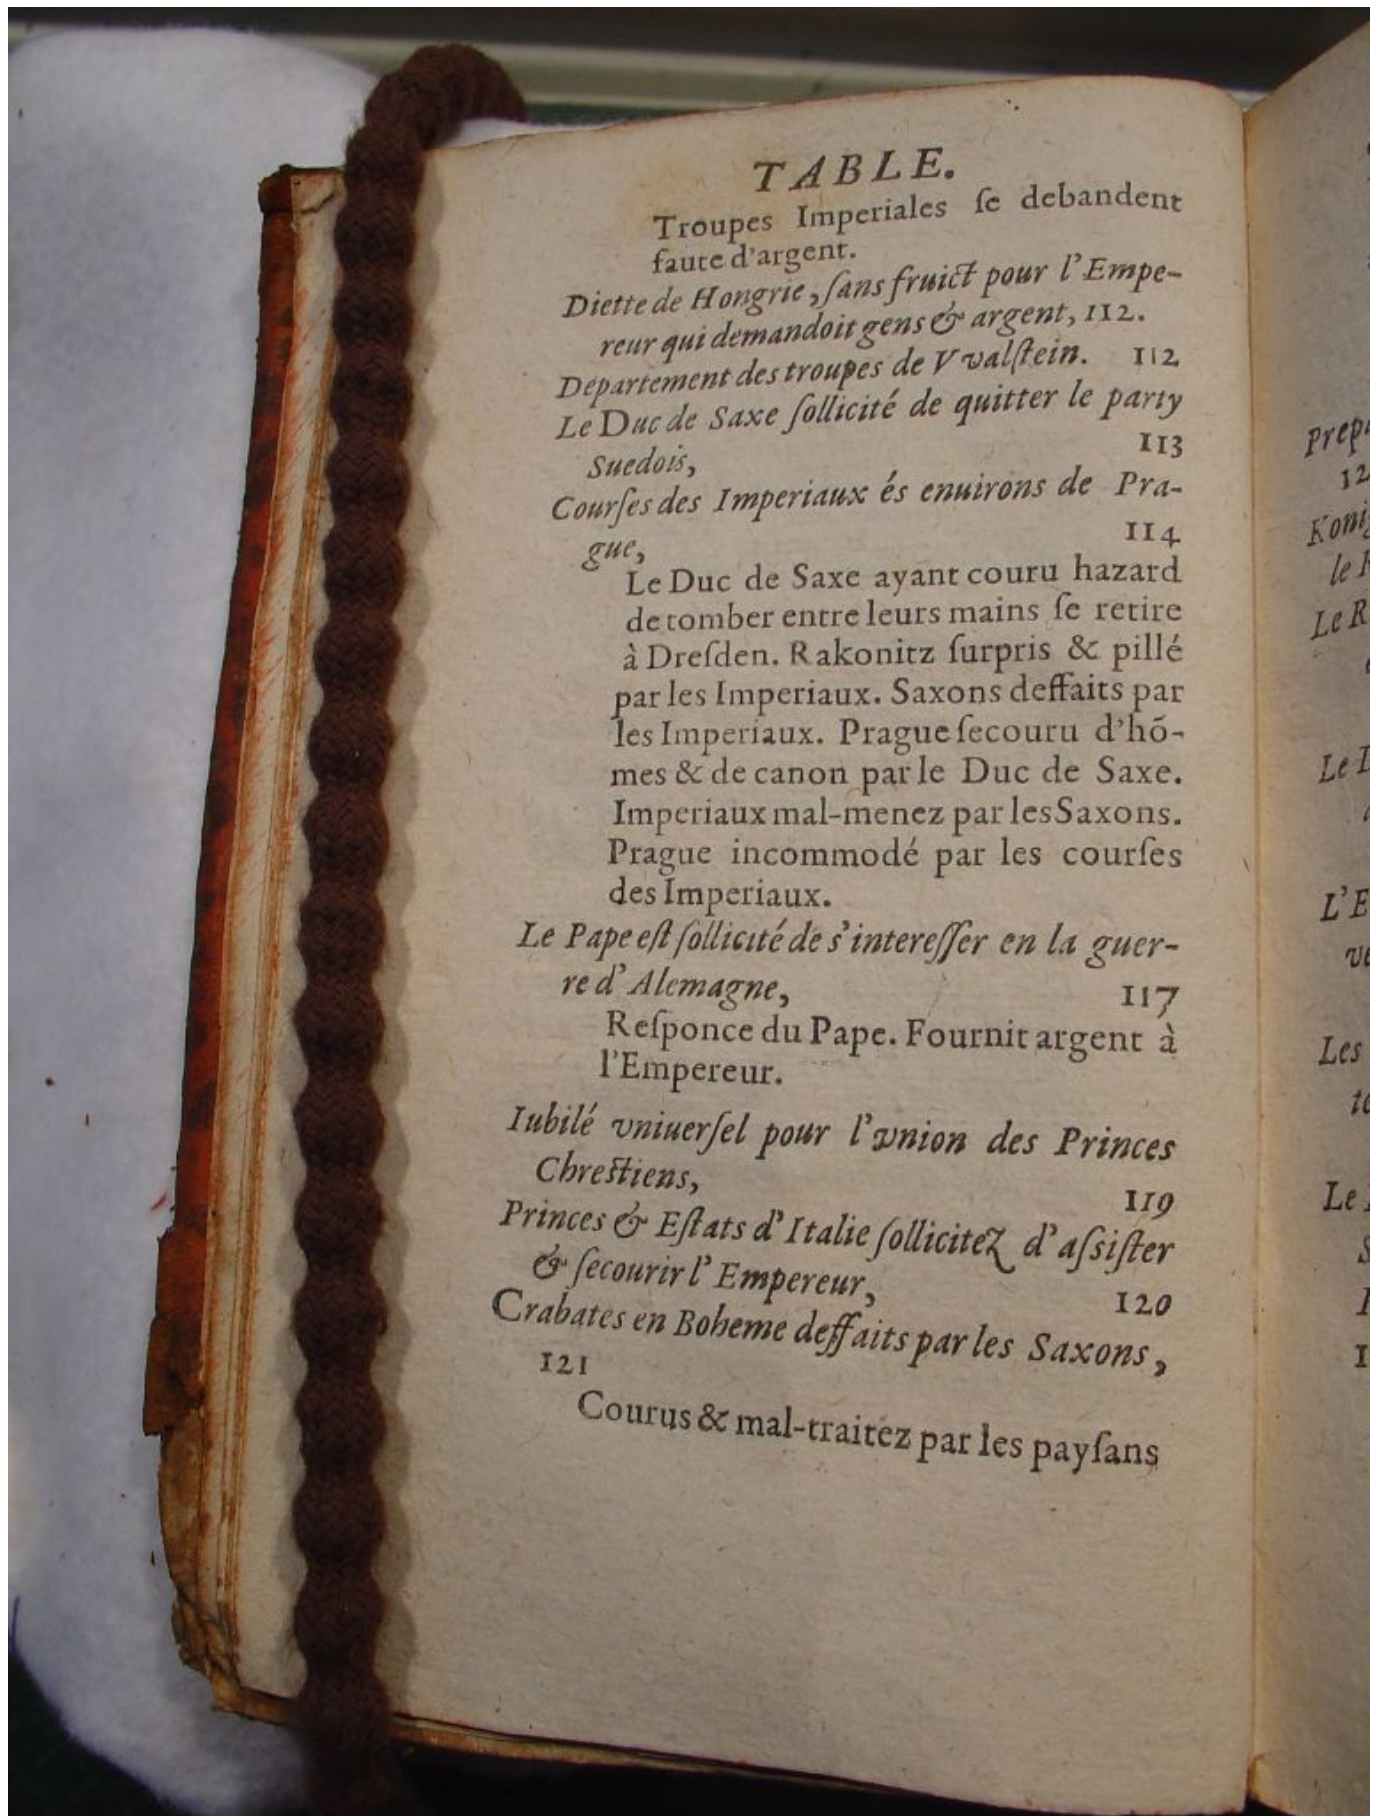 TABLE.
Troupes Imperiales ſe debandent
faute d'argent.
Diette de Hongrie, ſans fruict pour l'Empe-
reur qui demandoit gens & argent, 112.
Departement des troupes de Vvalſtein. 112
Le Duc de Saxe ſollicité de quitter le party
Suedois, 113
Courſes des Imperiaux és enuirons de Pra-
gue, 114
Le Duc de Saxe ayant couru hazard
de tomber entre leurs mains ſe retire
à Dreſden. Rakonitz ſurpris & pillé
par les Imperiaux. Saxons deffaits par
les Imperiaux. Prague ſecouru d'hõ-
mes & de canon par le Duc de Saxe.
Imperiaux mal-menez par les Saxons.
Prague incommodé par les courſes
des Imperiaux.
Le Pape eſt ſollicité de s'intereſſer en la guer-
re d'Alemagne, 117
Reſponce du Pape. Fournit argent à
l'Empereur.
Iubilé vniuerſel pour l'vnion des Princes
Chreſtiens, 119
Princes & Eſtats d'Italie ſollicitez d'aſsiſter
& ſecourir l'Empereur, 120
Crabates en Boheme deffaits par les Saxons,
121
Courus & mal-traitez par les payſans
Le R
L'E
Les
Le